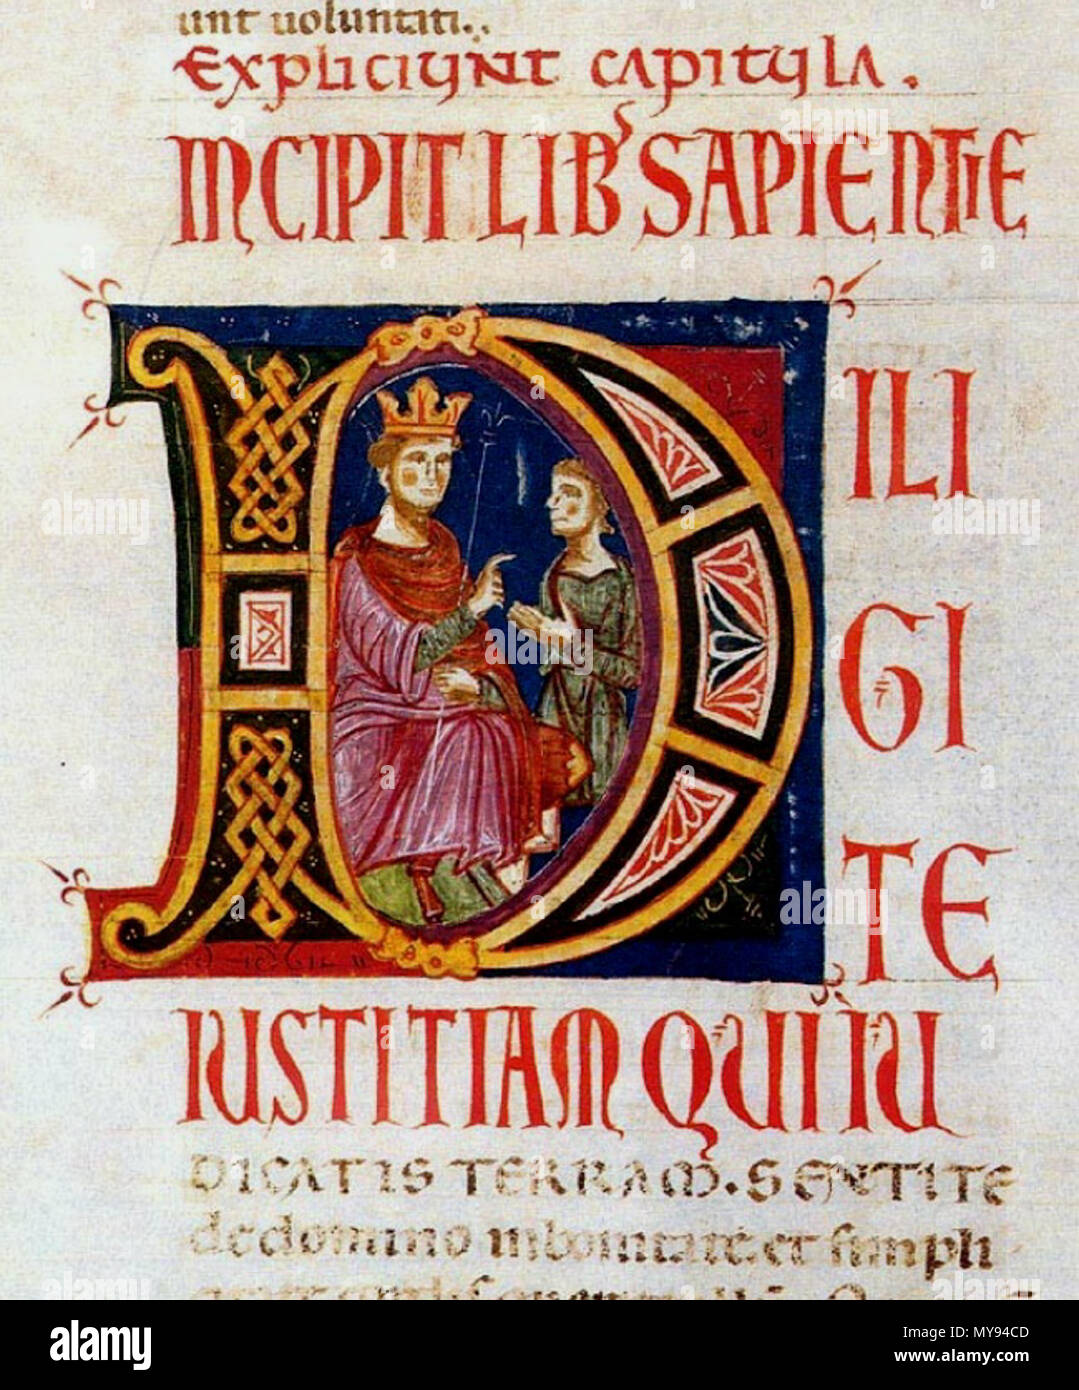 unt uoluntati..
Expliciunt capitula.
INCIPIT LIB' SAPIENTIE
D ILI
GI
TE
IUSTITIAM QUI IU
DICATIS TERRAM. SENTITE
de domino in bonitate. et simpli
a alamy stock photo
alamy
Image ID: MY94CD
www.alamy.com